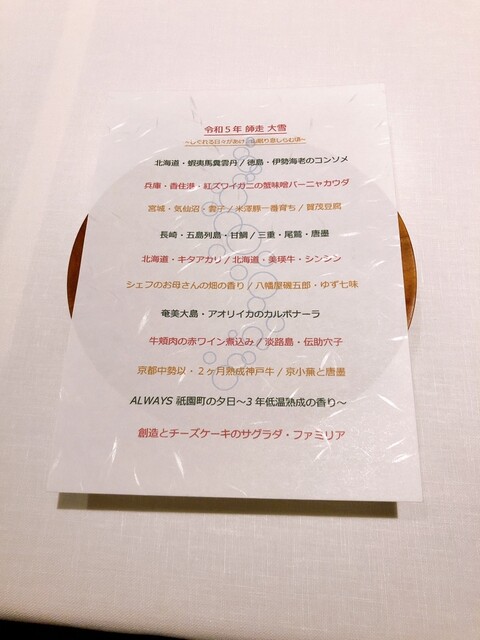 令和５年 師走 大雪
北海道・蝦夷馬糞雲丹 / 徳島・伊勢海老のコンソメ
兵庫・香住港・紅ズワイガニの蟹味噌バーニャカウダ
宮城・気仙沼・雲子 / 米澤豚一番育ち / 賀茂豆腐
長崎・五島列島・甘鯛 / 三重・尾鷲・唐墨
北海道・キタアカリ / 北海道・美瑛牛・シンシン
シェフのお母さんの畑の香り / 八幡屋礒五郎・ゆず七味
奄美大島・アオリイカのカルボナーラ
牛頬肉の赤ワイン煮込み / 淡路島・伝助穴子
京都中勢以・２ヶ月熟成神戸牛 / 京小蕪と唐墨
ALWAYS 祇園町の夕日～3 年低温熟成の香り～
創造とチーズケーキのサグラダ・ファミリア